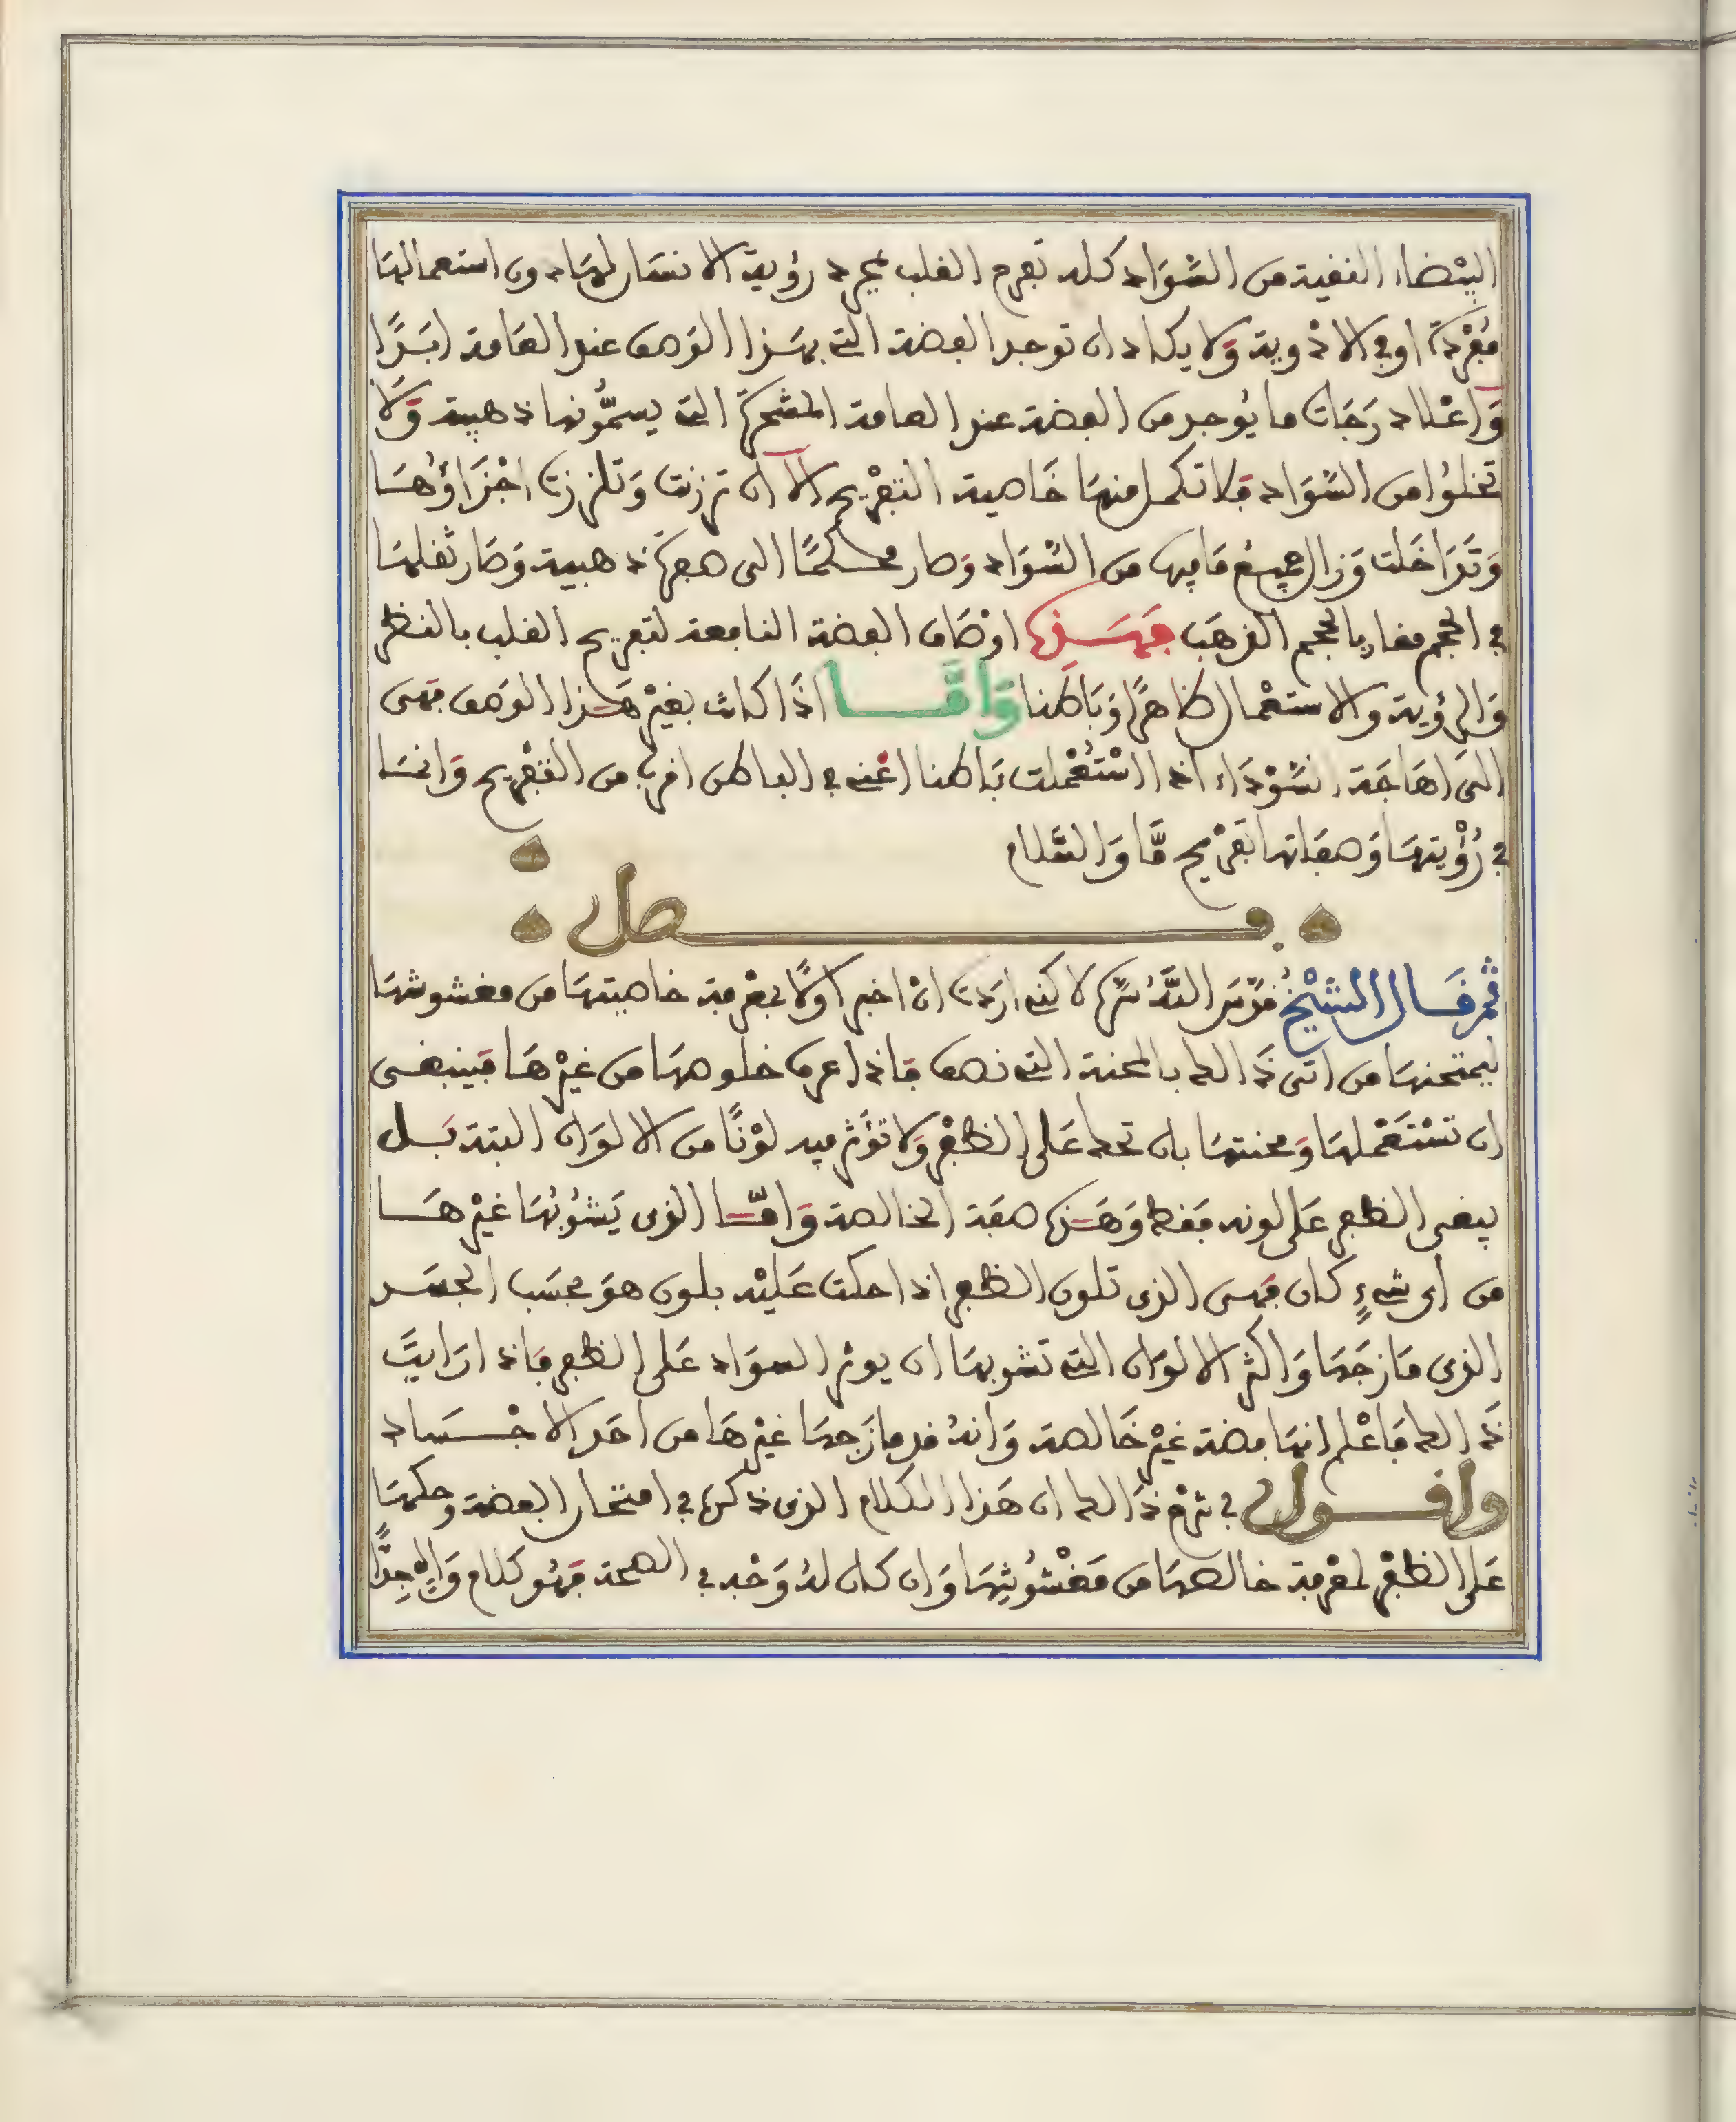 البيْضاء النقية من السَّوَاد كله تفرح القلب بمجرد رؤية الانسَان لهَا دون استعمالهَا
مُفْرَدَةً او في الادْوية وَلا يكاد ان توجد الفضة التي بهَذا الوَصف عند العَامة ابَدًا
وَاعْلا دَرَجَات ما يُوجد من الفضة عند العامة المشحرة التي يسمُّونها ذهبية وَلَا
تخلوُا من السَّوَاد فلا تكمل منهَا خَاصية التفْريح الا ان ترزنت وَتلززت اجْزَاؤُهَا
وَتَدَاخَلت وَزال جميعُ مَا فيها من السَّوَاد وَصار محكمًا الى صفرة ذهبية وَصَار ثقلهَا
في الحجم مقاربا لحجم الذهَب فهَذه اوْصَاف الفضة النافعة لتفريح القلب بالنظر
وَالرؤية والاستعْمال ظاهرًا وَبَاطنا وَامَّا اذَا كانت بغيْر هَذا الوَصف فهى
الىَ اهَاجَة السَّوْدَاء اذا اسْتُعْملت بَاطنا اعْني في الباطن اقرب من التفْريح وَانمَا
في رُؤْيتهَا وَصفاتها تفْريح مَّا وَالسَّلام
فصل
ثم قَال الشيْخُ قدّسَ اللَّهُ سرّه لاكني ارَدت انْ اخبر اوَلًا بمعْرفة خاصيتهَا من مغشوشهَا
ليمتحنهَا من اتى ذَالك بالمحنة التي نصف فاذا عرف خلوصهَا من غيْرهَا فينبغى
ان تسْتَعْملهَا وَمحنتهَا بان تحك عَلى الظفْر وَلا تؤَثر فيه لوْنًا من الالوَان البتة بَل
يبقى الظفر عَلى لونه فقط وَهَذه صفة الخالصة وَامَّا الذى يَشُوبُهَا غيْرهَا
من اى شىءٍ كان فهى الذى تلون الظفر اذا حكت عَليْه بلون هوَ بحسَب الجسَد
الذى مَازجَهَا وَاكثر الالوَان التي تشوبهَا ان يوثر السوَاد عَلى الظفر فاذا رَايتَ
ذَالك فَاعْلم انهَا فضة غيْر خَالصة وَانهُ قد مازَجهَا غيْرهَا من احَد الاجْسَاد
واقول في شرْح ذَالك ان هَذا الكلام الذى ذكره في امتحان الفضة وحكهَا
عَلى الظفْر لمعْرفة خالصهَا من مَغْشُوشِهَا وَان كان لهُ وَجْه في الصحة فهُو كلام وَاهٍ جِدًّا